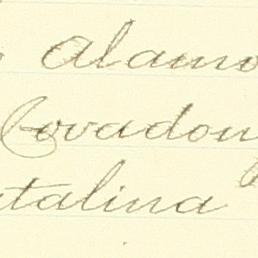 Alamo
Covadon
talina